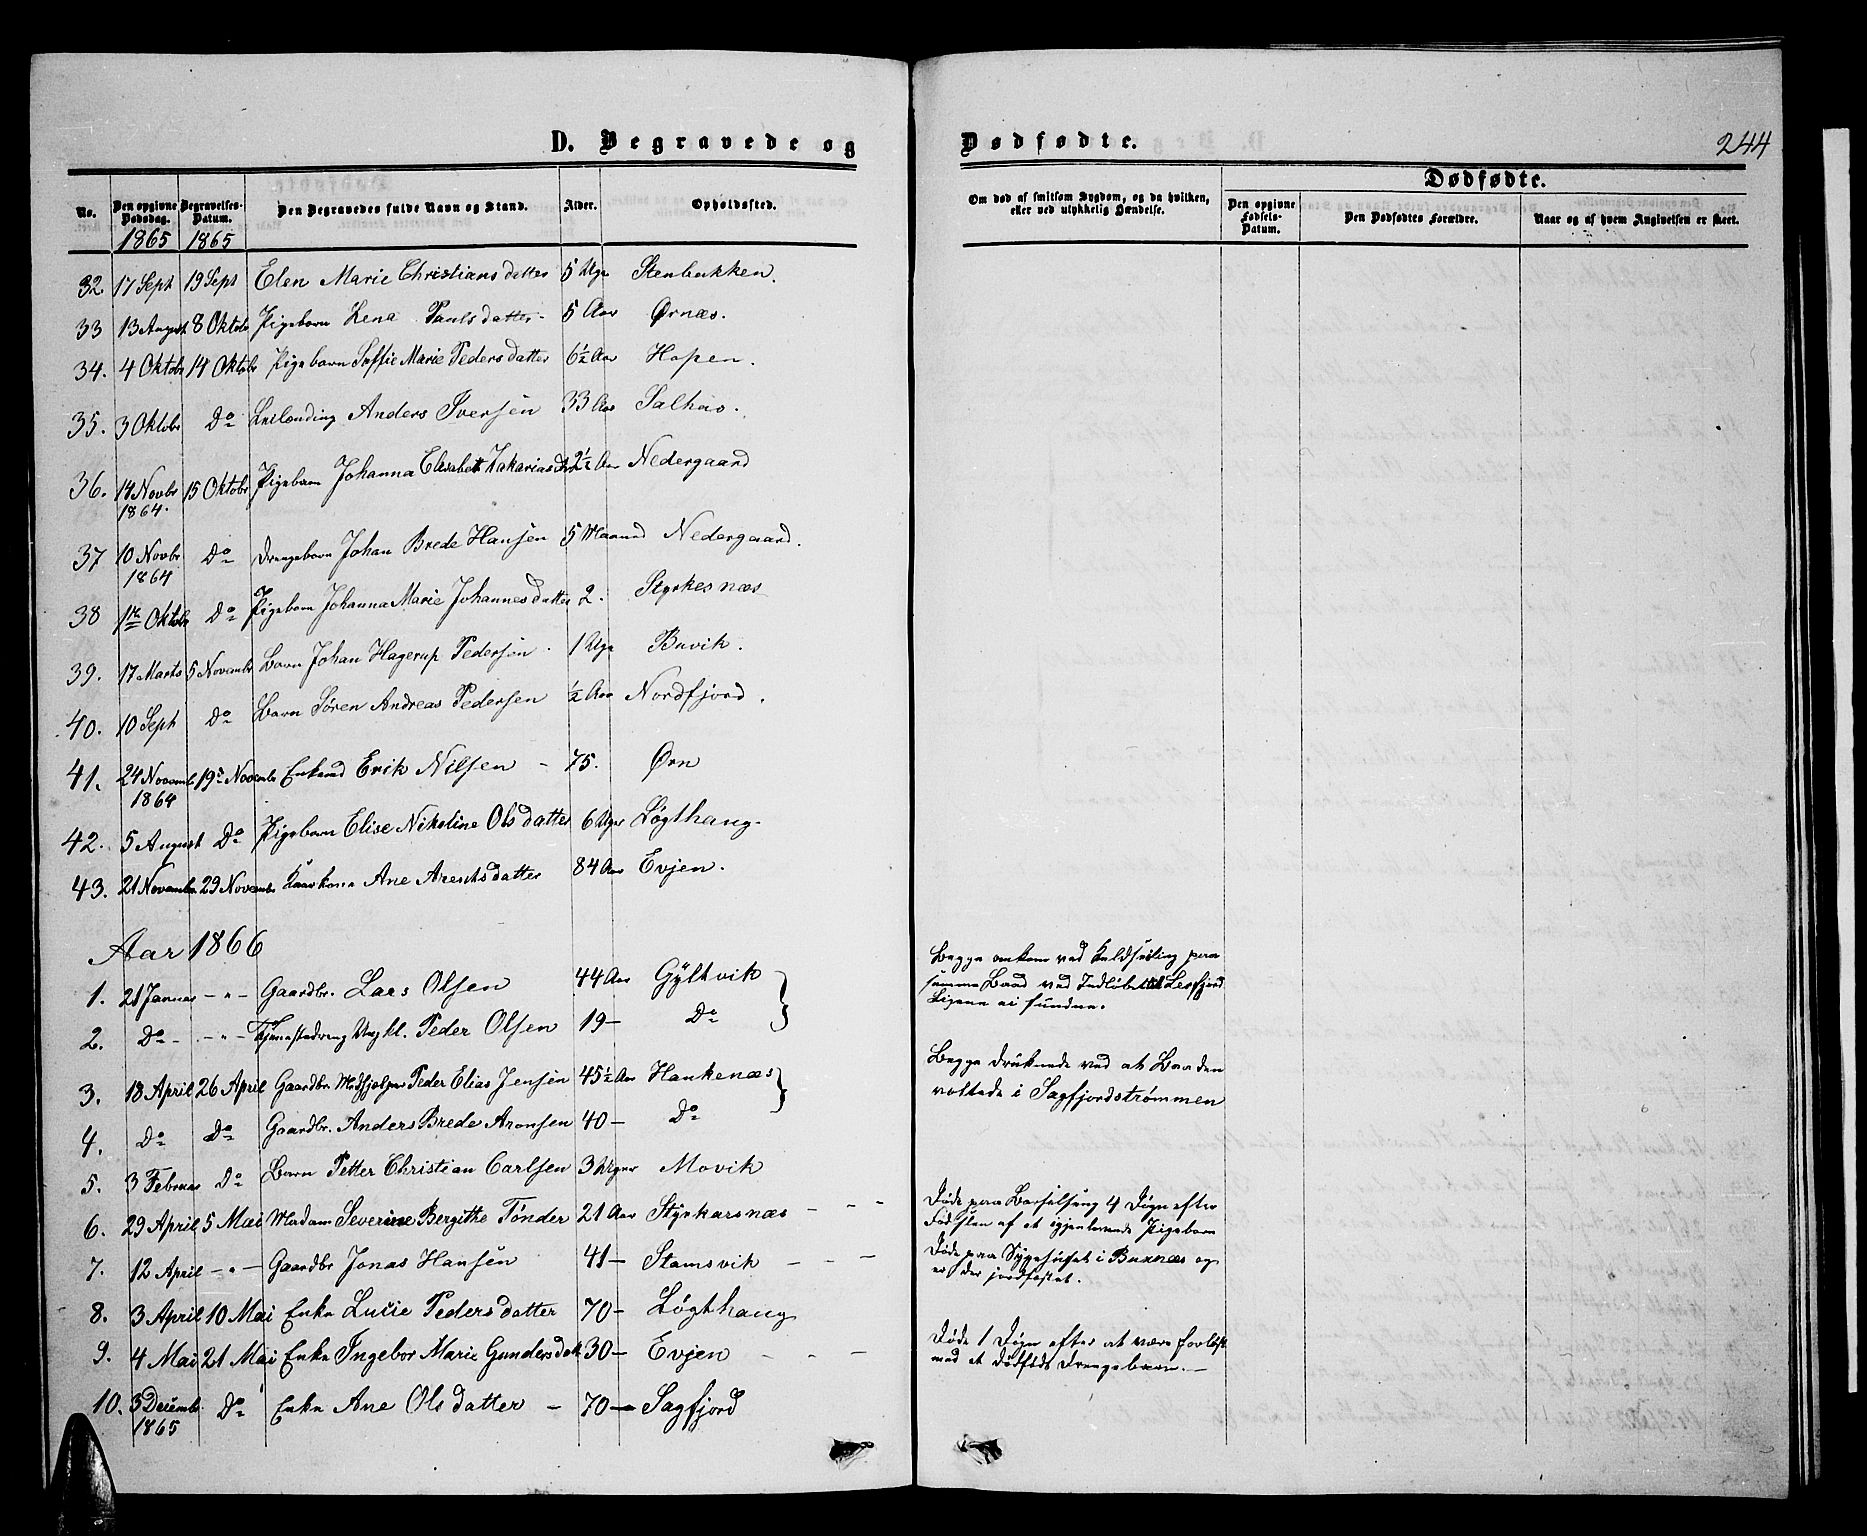 D. Begravede og Dødfødte.
244
No. Den opgivne Dødsdag. Begravelses-Datum. Den Begravedes fulde Navn og Stand. Alder. Opholdssted.
Om død af smitsom Sygdom, og da hvilken, eller ved ulykkelig Hændelse.
Dødfødte.
Den opgivne Fødsels-Datum. Den Dødfødtes Forældre. Naar og af hvem Angivelsen er skeet.
1865 1865
32. 17 Sept 19 Sept Elen Marie Christiansdatter 5 Uge Stenbukken.
33 13 August 8 Oktobr Pigebarn Lena Paulsdatter 5 Aar Ørnæs.
34. 4 Oktobr 14 Oktobr Pigebarn Soffie Marie Pedersdatter 6½ Aar Hopen.
35. 3 Oktobr Do Leilænding Anders Iversen 33 Aar Salhus.
36. 14 Novbr 1864. 15 Oktobr Pigebarn Johanna Elisabet Zakariasdtr 2½ Aar Nedergaard
37 10 Novbr 1864 Do Drengebarn Johan Brede Hansen 5 Maaned Nedergaard.
38 1te Oktobr Do Pigebarn Johanna Marie Johannesdatter 2. Styrkesnæs
39. 17 Marts 5 Novembr Barn Johan Hagerup Pedersen 1 Uge Buvik.
40. 10 Sept Do Barn Søren Andreas Pedersen ½ Aar Nordfjord.
41. 24 Novembr 1864 19 Novembr Enkemd Erik Nilsen - 75. Ørn
42. 5 August Do Pigebarn Elise Nikoline Olsdatter 6 Uger Løgthaug
43. 21 Novembr 29 Novembr Kaarkone Ane Arentsdatter 84 Aar Evjen.
Aar 1866
1. 21 Januar - " - Gaardbr. Lars Olsen 44 Aar Gyltvik
2. Do - - " - Tjenestedreng Ungkl. Peder Olsen 19 - Do
Begge omkom ved Kuldseiling paa
samme Baad ved Indløbet til Leofjord
Ligene ei fundne.
3. 18 April 26 April Gaardbr. Medhjelper Peder Elias Jensen 45½ Aar Hankenæs
4. Do Do Gaardbr. Anders Brede Aronsen 40 - Do
Begge druknede ved at Baaden
veltede i Sagfjordstrømmen
5. 3 Februar Do Barn Petter Christian Carlsen 3 Uger Movik
6. 29 April 5 Mai Madam Severine Bergithe Tønder 21 Aar Styrkarsnæs - -
Døde paa Barselseng 4 Døgn efter
Fødslen af et igjenlevende Pigebarn
7. 12 April - " - Gaardbr Jonas Hansen 41 - Stamsvik - - -
Døde paa Sygehuset i Buxnæs og
er der jordfæstet.
8. 3 April 10 Mai Enke Lucie Pedersdatter 70 - Løgthaug
9. 4 Mai 21 Mai Enke Ingebor Marie Gundersdatt 30 - Evjen - - -
Døde 1 Døgn efter at være forløst
med et dødfødt Drengebarn. -
10. 3 Decembr. 1865 Do Enke Ane Olsdatter - 70 - Sagfjord